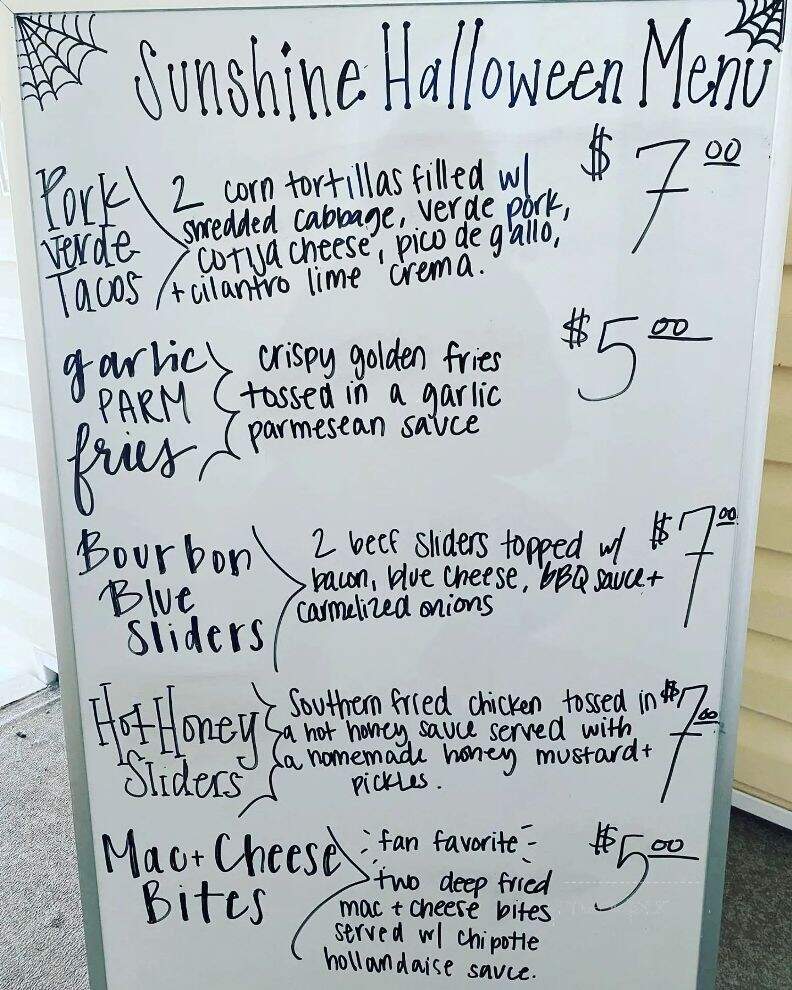 Sunshine Halloween Menu
Pork
Verde
Tacos
2 corn tortillas filled w/
shredded cabbage, verde pork,
cotija cheese, pico de gallo,
+ cilantro lime crema.
$7.00
garlic
PARM
fries
crispy golden fries
tossed in a garlic
parmesean sauce
$5.00
Bourbon
Blue
Sliders
2 beef sliders topped w/
bacon, blue cheese, BBQ sauce +
carmelized onions
$7.00
Hot Honey
Sliders
Southern fried chicken tossed in
a hot honey sauce served with
a homemade honey mustard +
pickles.
$7.00
Mac + Cheese
Bites
fan favorite
two deep fried
mac + cheese bites
served w/ chipotle
hollandaise sauce.
$5.00